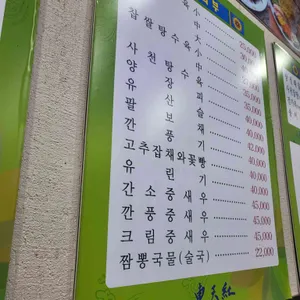 찹쌀탕수육 小
中
大
사천탕수육 小
中
양 장 피 40,000
유 산 슬 40,000
팔 보 채 42,000
깐 풍 기 40,000
고추잡채와꽃빵 40,000
유 린 기 40,000
간 소 중 새 우 45,000
깐 풍 중 새 우 45,000
크 림 중 새 우 45,000
짬뽕국물(술국) 22,000